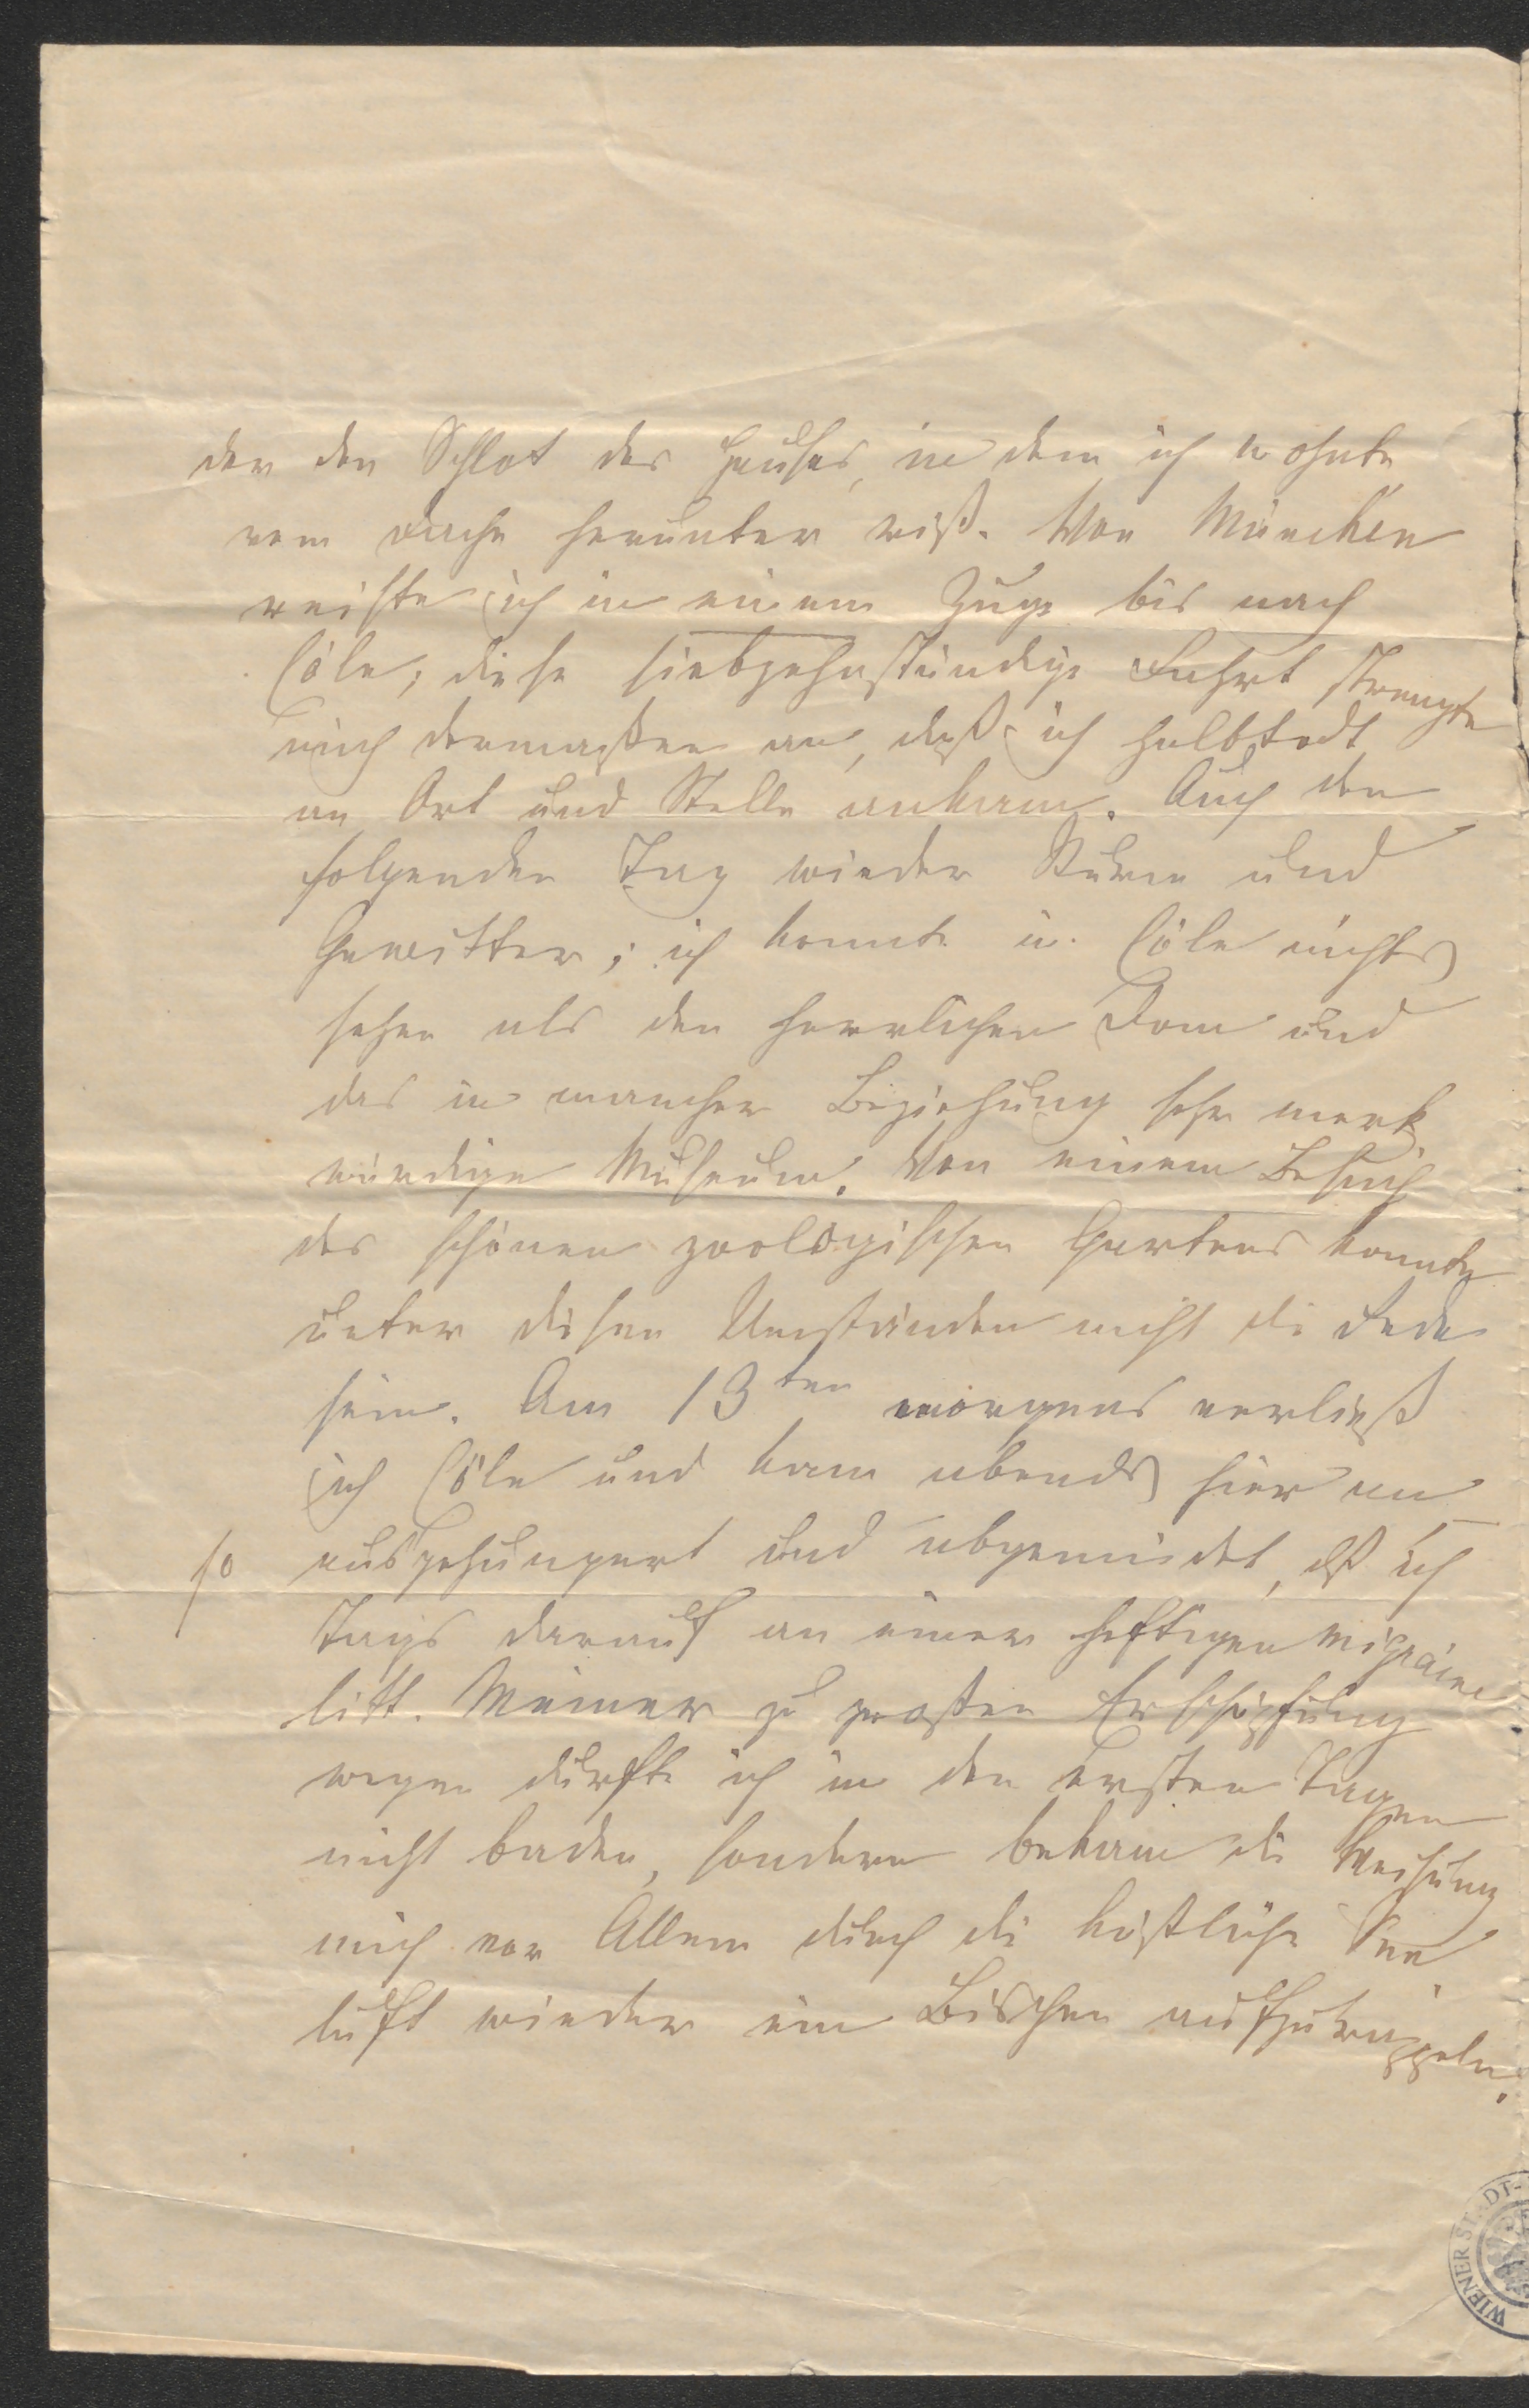 der den Schlot des Hauses, in dem ich wohnte
vom Dache herunter riß. Von München
reiste ich in einem Zuge bis nach
Cöln; diese siebzehnstündige Fahrt strengte
mich dermaßen an, daß ich halbtodt
an Ort und Stelle ankam. Auch den
folgenden Tag wieder Sturm und
Gewitter; ich konnte in Cöln nichts
sehen als den herrlichen Dom und
das in mancher Beziehung sehr merk
würdige Museum. Von einem Besuch
des schönen zoologischen Gartens konnte
unter diesen Umständen nicht die Rede
sein. Am 13ten morgens verließ
ich Cöln und kam abends hier an
so ausgehungert und abgemüdet, dß ich
Tags darauf an einer heftigen Migraine
litt. Meiner zu großen Erschöpfung
wegen durfte ich in den ersten Tagen
nicht baden, sondern bekam die Weisung
mich vor Allem durch die köstliche See
luft wieder ein Bischen aufzurappeln.
WIENER STADT-